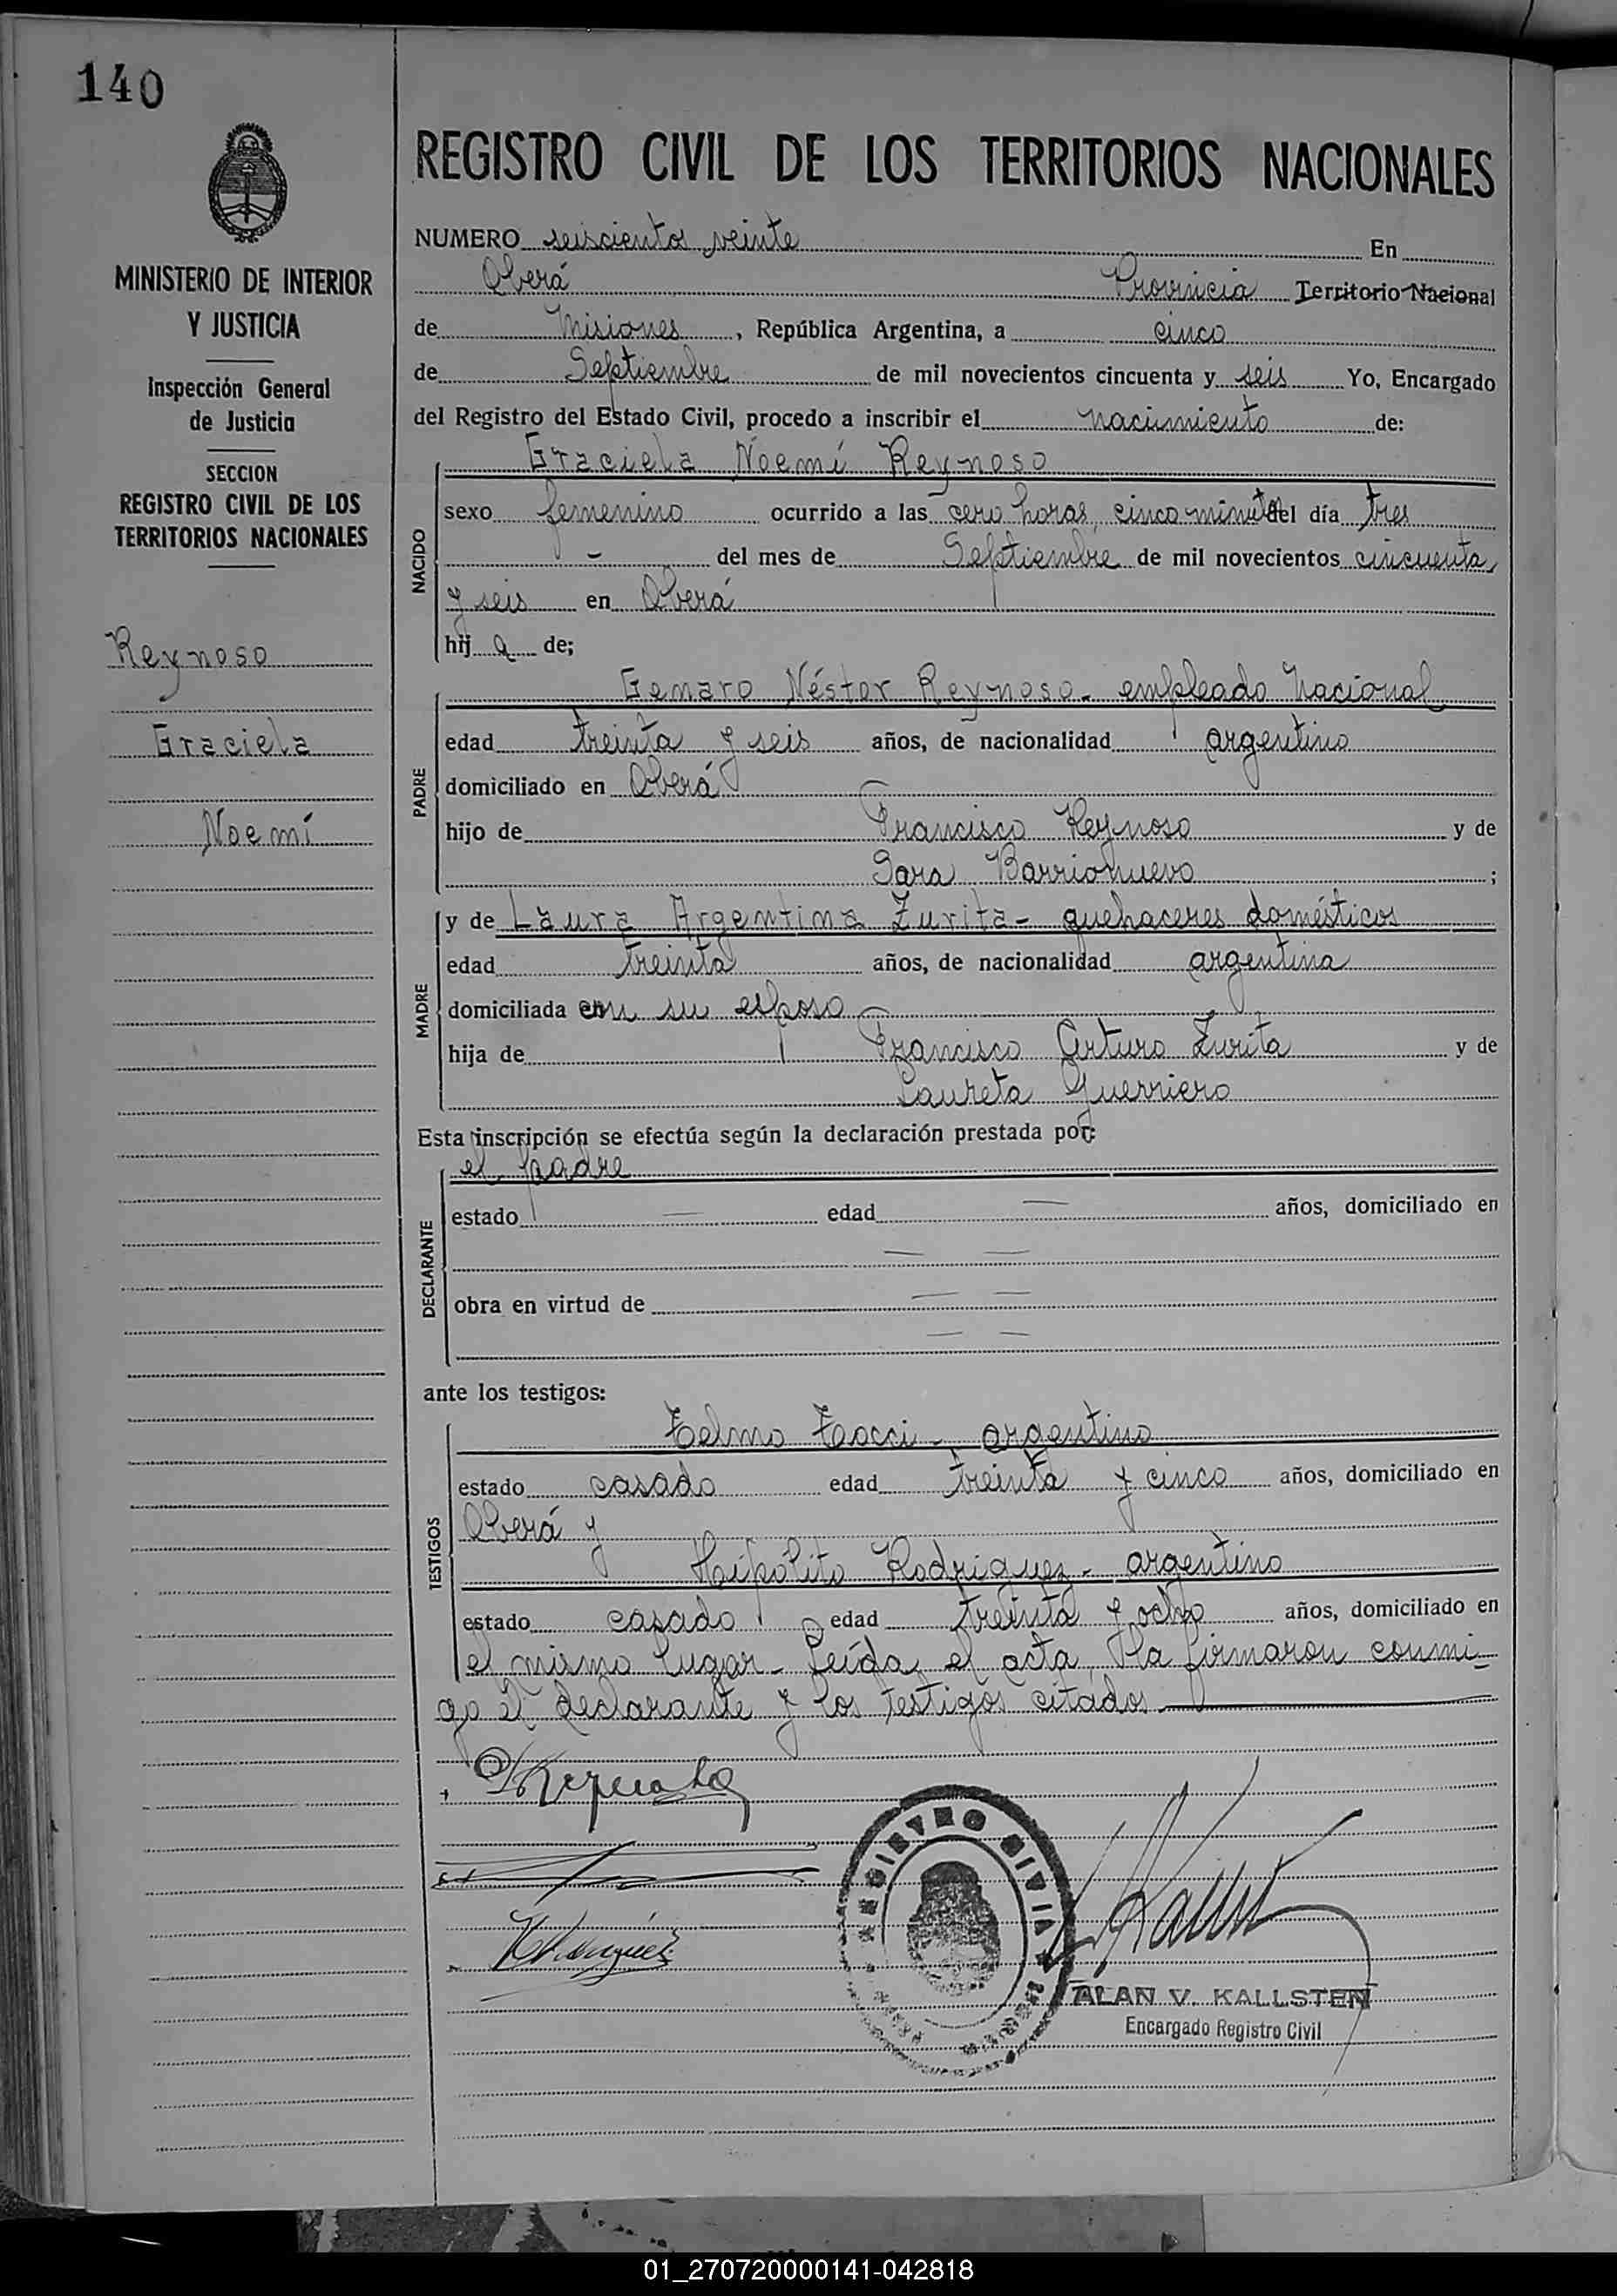 140
MINISTERIO DE INTERIOR
Y JUSTICIA
Inspección General
de Justicia
SECCION
REGISTRO CIVIL DE LOS
TERRITORIOS NACIONALES
Reynoso
Graciela
Noemí
REGISTRO CIVIL DE LOS TERRITORIOS NACIONALES
NUMERO seiscientos veinte En
Oberá Provincia Territorio Nacional
de Misiones, República Argentina, a cinco
de Septiembre de mil novecientos cincuenta y seis Yo, Encargado
del Registro del Estado Civil, procedo a inscribir el nacimiento de:
NACIDO
Graciela Noemí Reynoso
sexo femenino ocurrido a las cero horas, cinco minutos del día tres
- del mes de Septiembre de mil novecientos cincuenta
y seis en Oberá
hij a de;
PADRE
Genaro Néstor Reynoso - empleado Nacional
edad treinta y seis años, de nacionalidad argentino
domiciliado en Oberá
hijo de Francisco Reynoso y de
Sara Barrionuevo ;
MADRE
y de Laura Argentina Zurita - quehaceres domésticos
edad treinta años, de nacionalidad argentina
domiciliada con su esposo
hija de Francisco Arturo Zurita y de
Laureta Guerriero
Esta inscripción se efectúa según la declaración prestada por:
DECLARANTE
el padre
estado — edad — años, domiciliado en
— —
obra en virtud de — —
— —
ante los testigos:
TESTIGOS
Telmo Tocci - argentino
estado casado edad treinta y cinco años, domiciliado en
Oberá y
Hipólito Rodriguez - argentino
estado casado edad treinta y ocho años, domiciliado en
el mismo lugar - Leída el acta, la firmaron conmi-
go el declarante y los testigos citados
REGISTRO CIVIL
ALAN V. KALLSTEN
Encargado Registro Civil
01_270720000141-042818